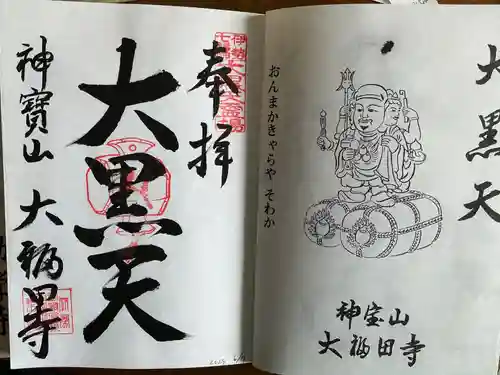 奉拝
大黒天
神寳山 大福田寺
大黒天
おんまかきゃらや そわか
神宝山
大福田寺